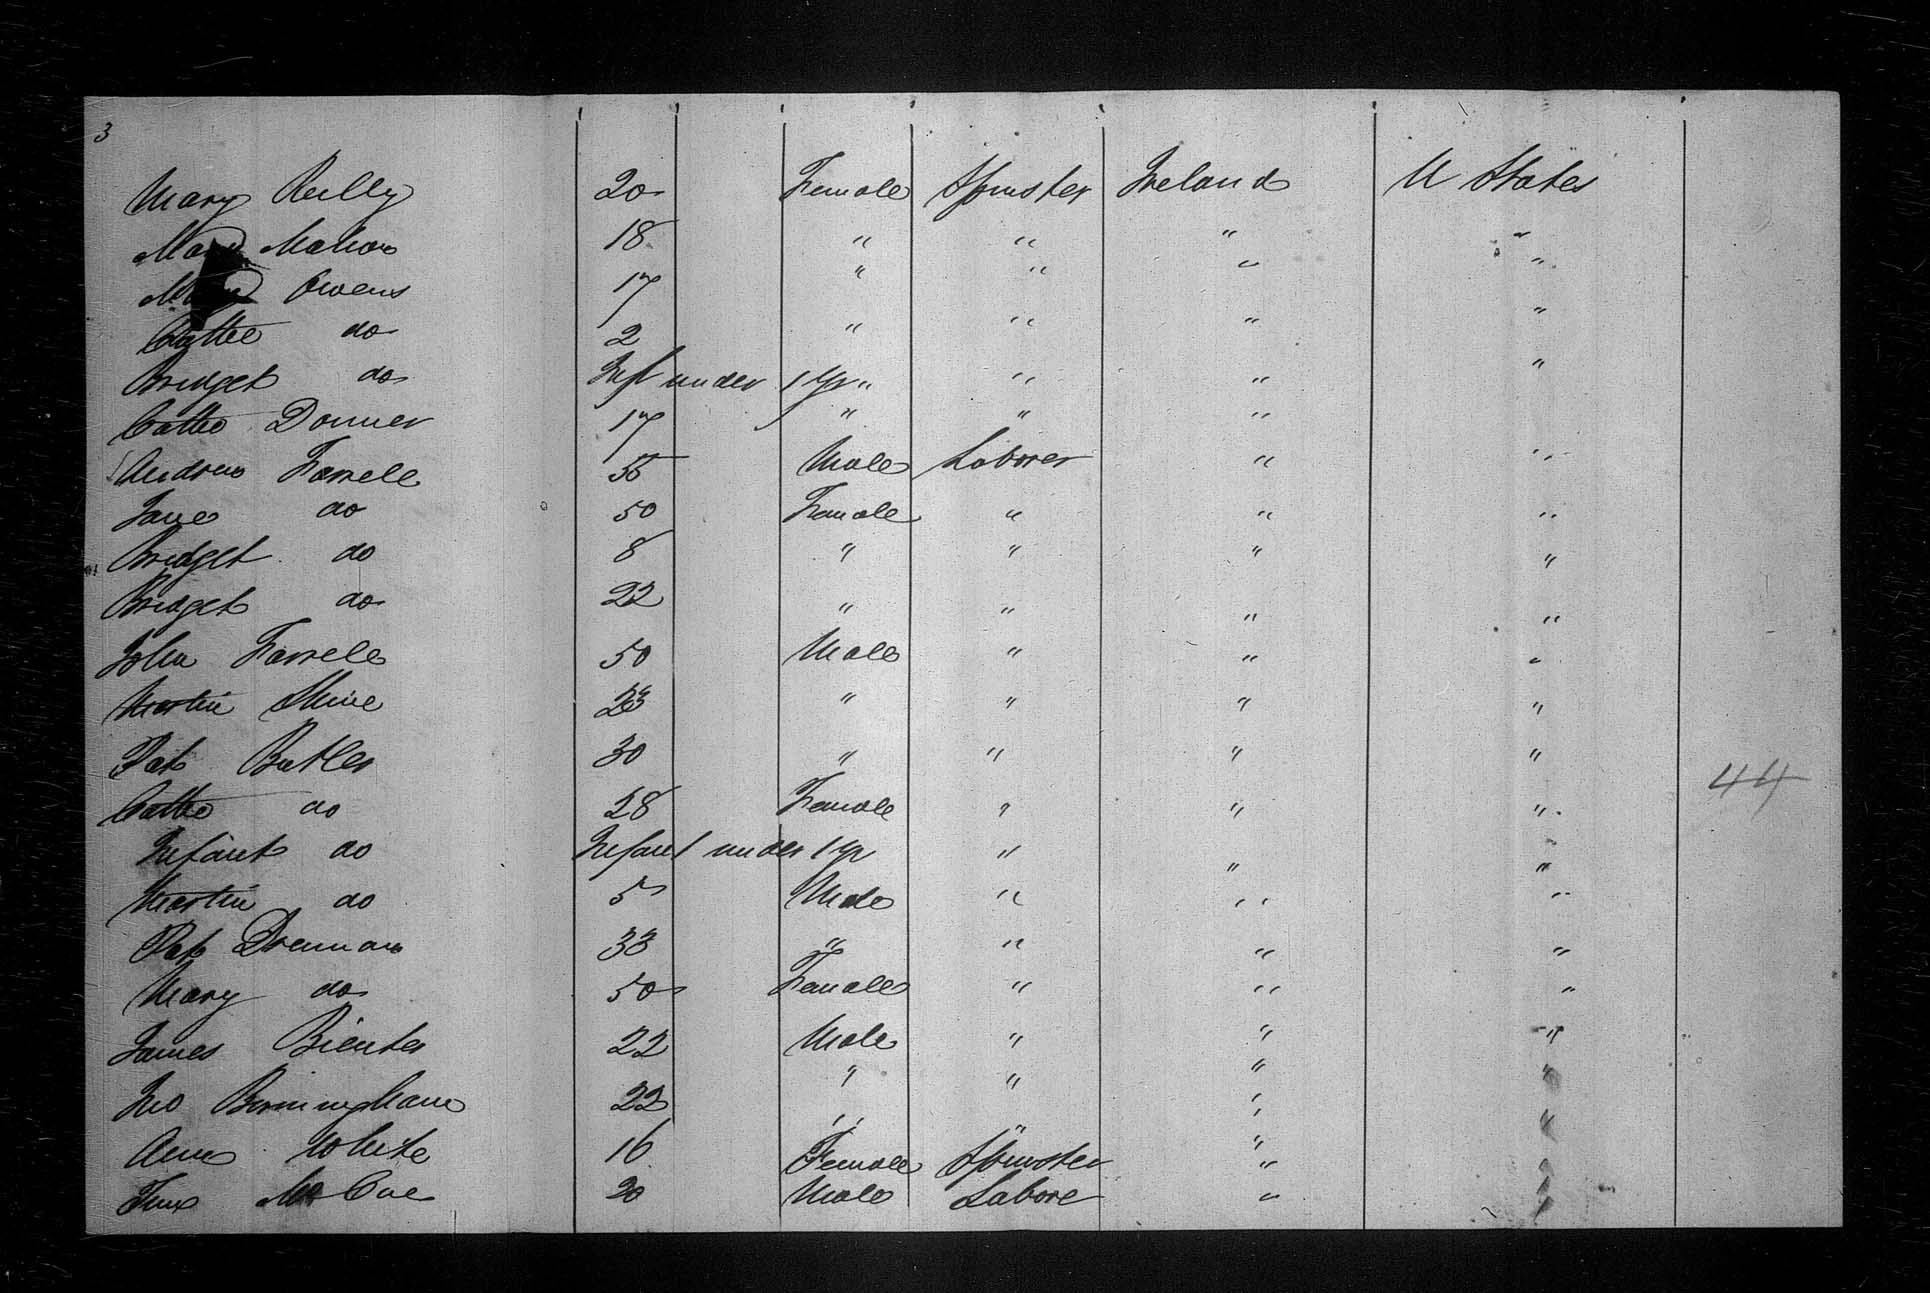 3
Mary Reilly 20 Female Spinster Ireland U States
Mary Mahon 18 " " " "
Mary Owens 17 " " " "
Cathe do 2 " " " "
Bridget do Inft under 1 yr " " " "
Cathe Donner 17 " " "
Andrew Farrell Male Laborer " "
Jane do 50 Female " " "
Bridget do 8 " " " "
Bridget do 22 " " " "
John Farrell 50 Male " " "
Martin Shine 23 " " " "
Pat Butler 30 " " " "
Cathe do 28 Female " " "
Infant do Infant under 1 yr " " "
Martin do 5 Male " " "
Pat Drennan 33 " " " "
Mary do 50 Female " " "
James 22 Male " " "
Jno Birmingham 22 " " " "
Ann White 16 Female Spinster " "
McCue 20 Male Labore " "
44